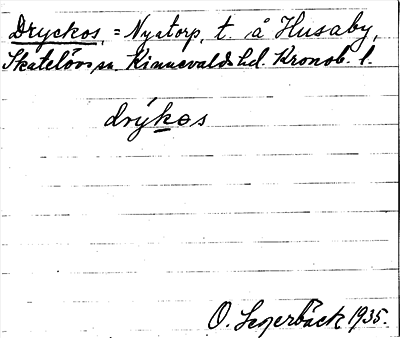 Dryckos, = Nyatorp, t. å Husaby,
Skatelövs sn. Kinnevalds hd. Kronob. l.
drýkos
O. 1935.